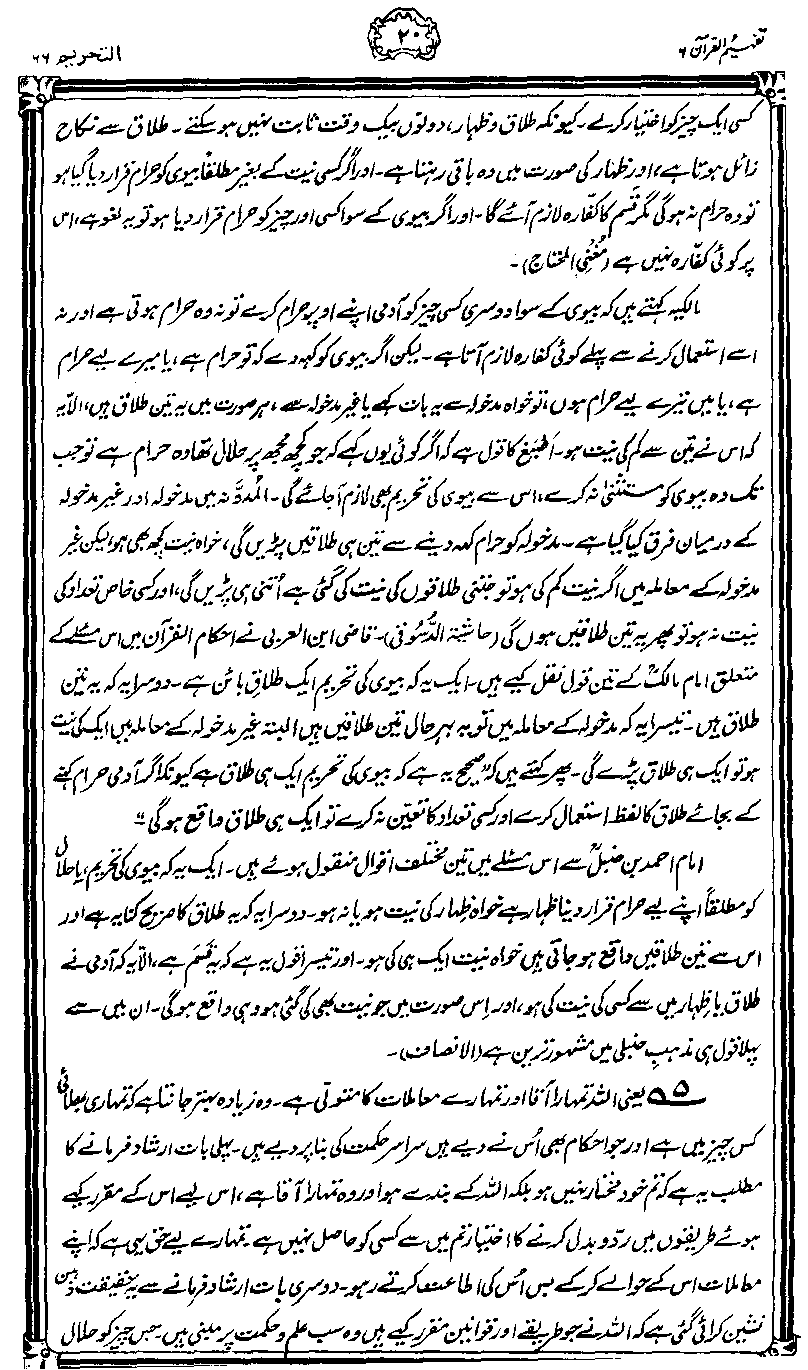 تفہیم القرآن ۶
۲۰
التحریم ۶۶
کسی ایک چیز کو اختیار کرے۔ کیونکہ طلاق و ظہار، دونوں بیک وقت ثابت نہیں ہو سکتے۔ طلاق سے نکاح
زائل ہوتا ہے، اور ظہار کی صورت میں وہ باقی رہتا ہے۔ اور اگر کسی نیت کے بغیر مطلقاً بیوی کو حرام قرار دیا گیا ہو
تو وہ حرام نہ ہوگی مگر قسم کا کفّارہ لازم آئے گا۔ اور اگر بیوی کے سوا کسی اور چیز کو حرام قرار دیا ہو تو یہ لغو ہے، اس
پر کوئی کفّارہ نہیں ہے (مُغنی المحتاج)۔
مالکیہ کہتے ہیں کہ بیوی کے سوا دوسری کسی چیز کو آدمی اپنے اوپر حرام کرے تو نہ وہ حرام ہوتی ہے اور نہ
اسے استعمال کرنے سے پہلے کوئی کفارہ لازم آتا ہے۔ لیکن اگر بیوی کو کہہ دے کہ تو حرام ہے، یا میرے لیے حرام
ہے، یا میں تیرے لیے حرام ہوں، تو خواہ مدخولہ سے یہ بات کہے یا غیر مدخولہ سے، ہر صورت میں یہ تین طلاق ہیں، الّا یہ
کہ اس نے تین سے کم کی نیت ہو۔ اَصْبَغ کا قول ہے کہ اگر کوئی یوں کہے کہ جو کچھ مجھ پر حلال تھا وہ حرام ہے تو جب
تک وہ بیوی کو مستثنیٰ نہ کرے، اس سے بیوی کی تحریم بھی لازم آ جائے گی۔ المُدوَّنہ میں مدخولہ اور غیر مدخولہ
کے درمیان فرق کیا گیا ہے۔ مدخولہ کو حرام کہہ دینے سے تین ہی طلاقیں پڑیں گی، خواہ نیت کچھ بھی ہو لیکن غیر
مدخولہ کے معاملہ میں اگر نیت کم کی ہو تو جتنی طلاقوں کی نیت کی گئی ہے اُتنی ہی پڑیں گی، اور کسی خاص تعداد کی
نیت نہ ہو تو پھر یہ تین طلاقیں ہوں گی (حاشیۃ الدُّسُوقی)۔ قاضی ابن العربی نے احکام القرآن میں اس مسئلے کے
متعلق امام مالکؒ کے تین قول نقل کیے ہیں۔ ایک یہ کہ بیوی کی تحریم ایک طلاقِ بائن ہے۔ دوسرا یہ کہ یہ تین
طلاق ہیں۔ تیسرا یہ کہ مدخولہ کے معاملہ میں تو یہ بہرحال تین طلاقیں ہیں البتہ غیر مدخولہ کے معاملہ میں ایک کی نیت
ہو تو ایک ہی طلاق پڑے گی۔ پھر کہتے ہیں کہ ”صحیح یہ ہے کہ بیوی کی تحریم ایک ہی طلاق ہے کیونکہ اگر آدمی حرام کہنے
کے بجائے طلاق کا لفظ استعمال کرے اور کسی تعداد کا تعیّن نہ کرے تو ایک ہی طلاق واقع ہوگی“۔
امام احمد بن حنبلؒ سے اس مسئلے میں تین مختلف اقوال منقول ہوئے ہیں۔ ایک یہ کہ بیوی کی تحریم، یا حلال
کو مطلقاً اپنے لیے حرام قرار دینا ظہار ہے خواہ ظِہار کی نیت ہو یا نہ ہو۔ دوسرا یہ کہ یہ طلاق کا صریح کنایہ ہے اور
اس سے تین طلاقیں واقع ہو جاتی ہیں خواہ نیت ایک ہی کی ہو۔ اور تیسرا قول یہ ہے کہ یہ قَسَم ہے، الّا یہ کہ آدمی نے
طلاق یا ظِہار میں سے کسی کی نیت کی ہو، اور اِس صورت میں جو نیت بھی کی گئی ہو وہی واقع ہوگی۔ ان میں سے
پہلا قول ہی مذہبِ حنبلی میں مشہور ترین ہے (الانصاف)۔
۵ یعنی اللہ تمہارا آقا اور تمہارے معاملات کا متولّی ہے۔ وہ زیادہ بہتر جانتا ہے کہ تمہاری بھلائی
کس چیز میں ہے اور جو احکام بھی اُس نے دیے ہیں سراسر حکمت کی بنا پر دیے ہیں۔ پہلی بات ارشاد فرمانے کا
مطلب یہ ہے کہ تم خود مختار نہیں ہو بلکہ اللہ کے بندے ہو اور وہ تمہارا آقا ہے، اس لیے اس کے مقرر کیے
ہوئے طریقوں میں ردّ و بدل کرنے کا اختیار تم میں سے کسی کو حاصل نہیں ہے۔ تمہارے لیے حق یہی ہے کہ اپنے
معاملات اس کے حوالے کر کے بس اُس کی اطاعت کرتے رہو۔ دوسری بات ارشاد فرمانے سے یہ حقیقت ذہن
نشین کرائی گئی ہے کہ اللہ نے جو طریقے اور قوانین مقرر کیے ہیں وہ سب علم و حکمت پر مبنی ہیں۔ جس چیز کو حلال